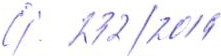 Čj. 232/2019